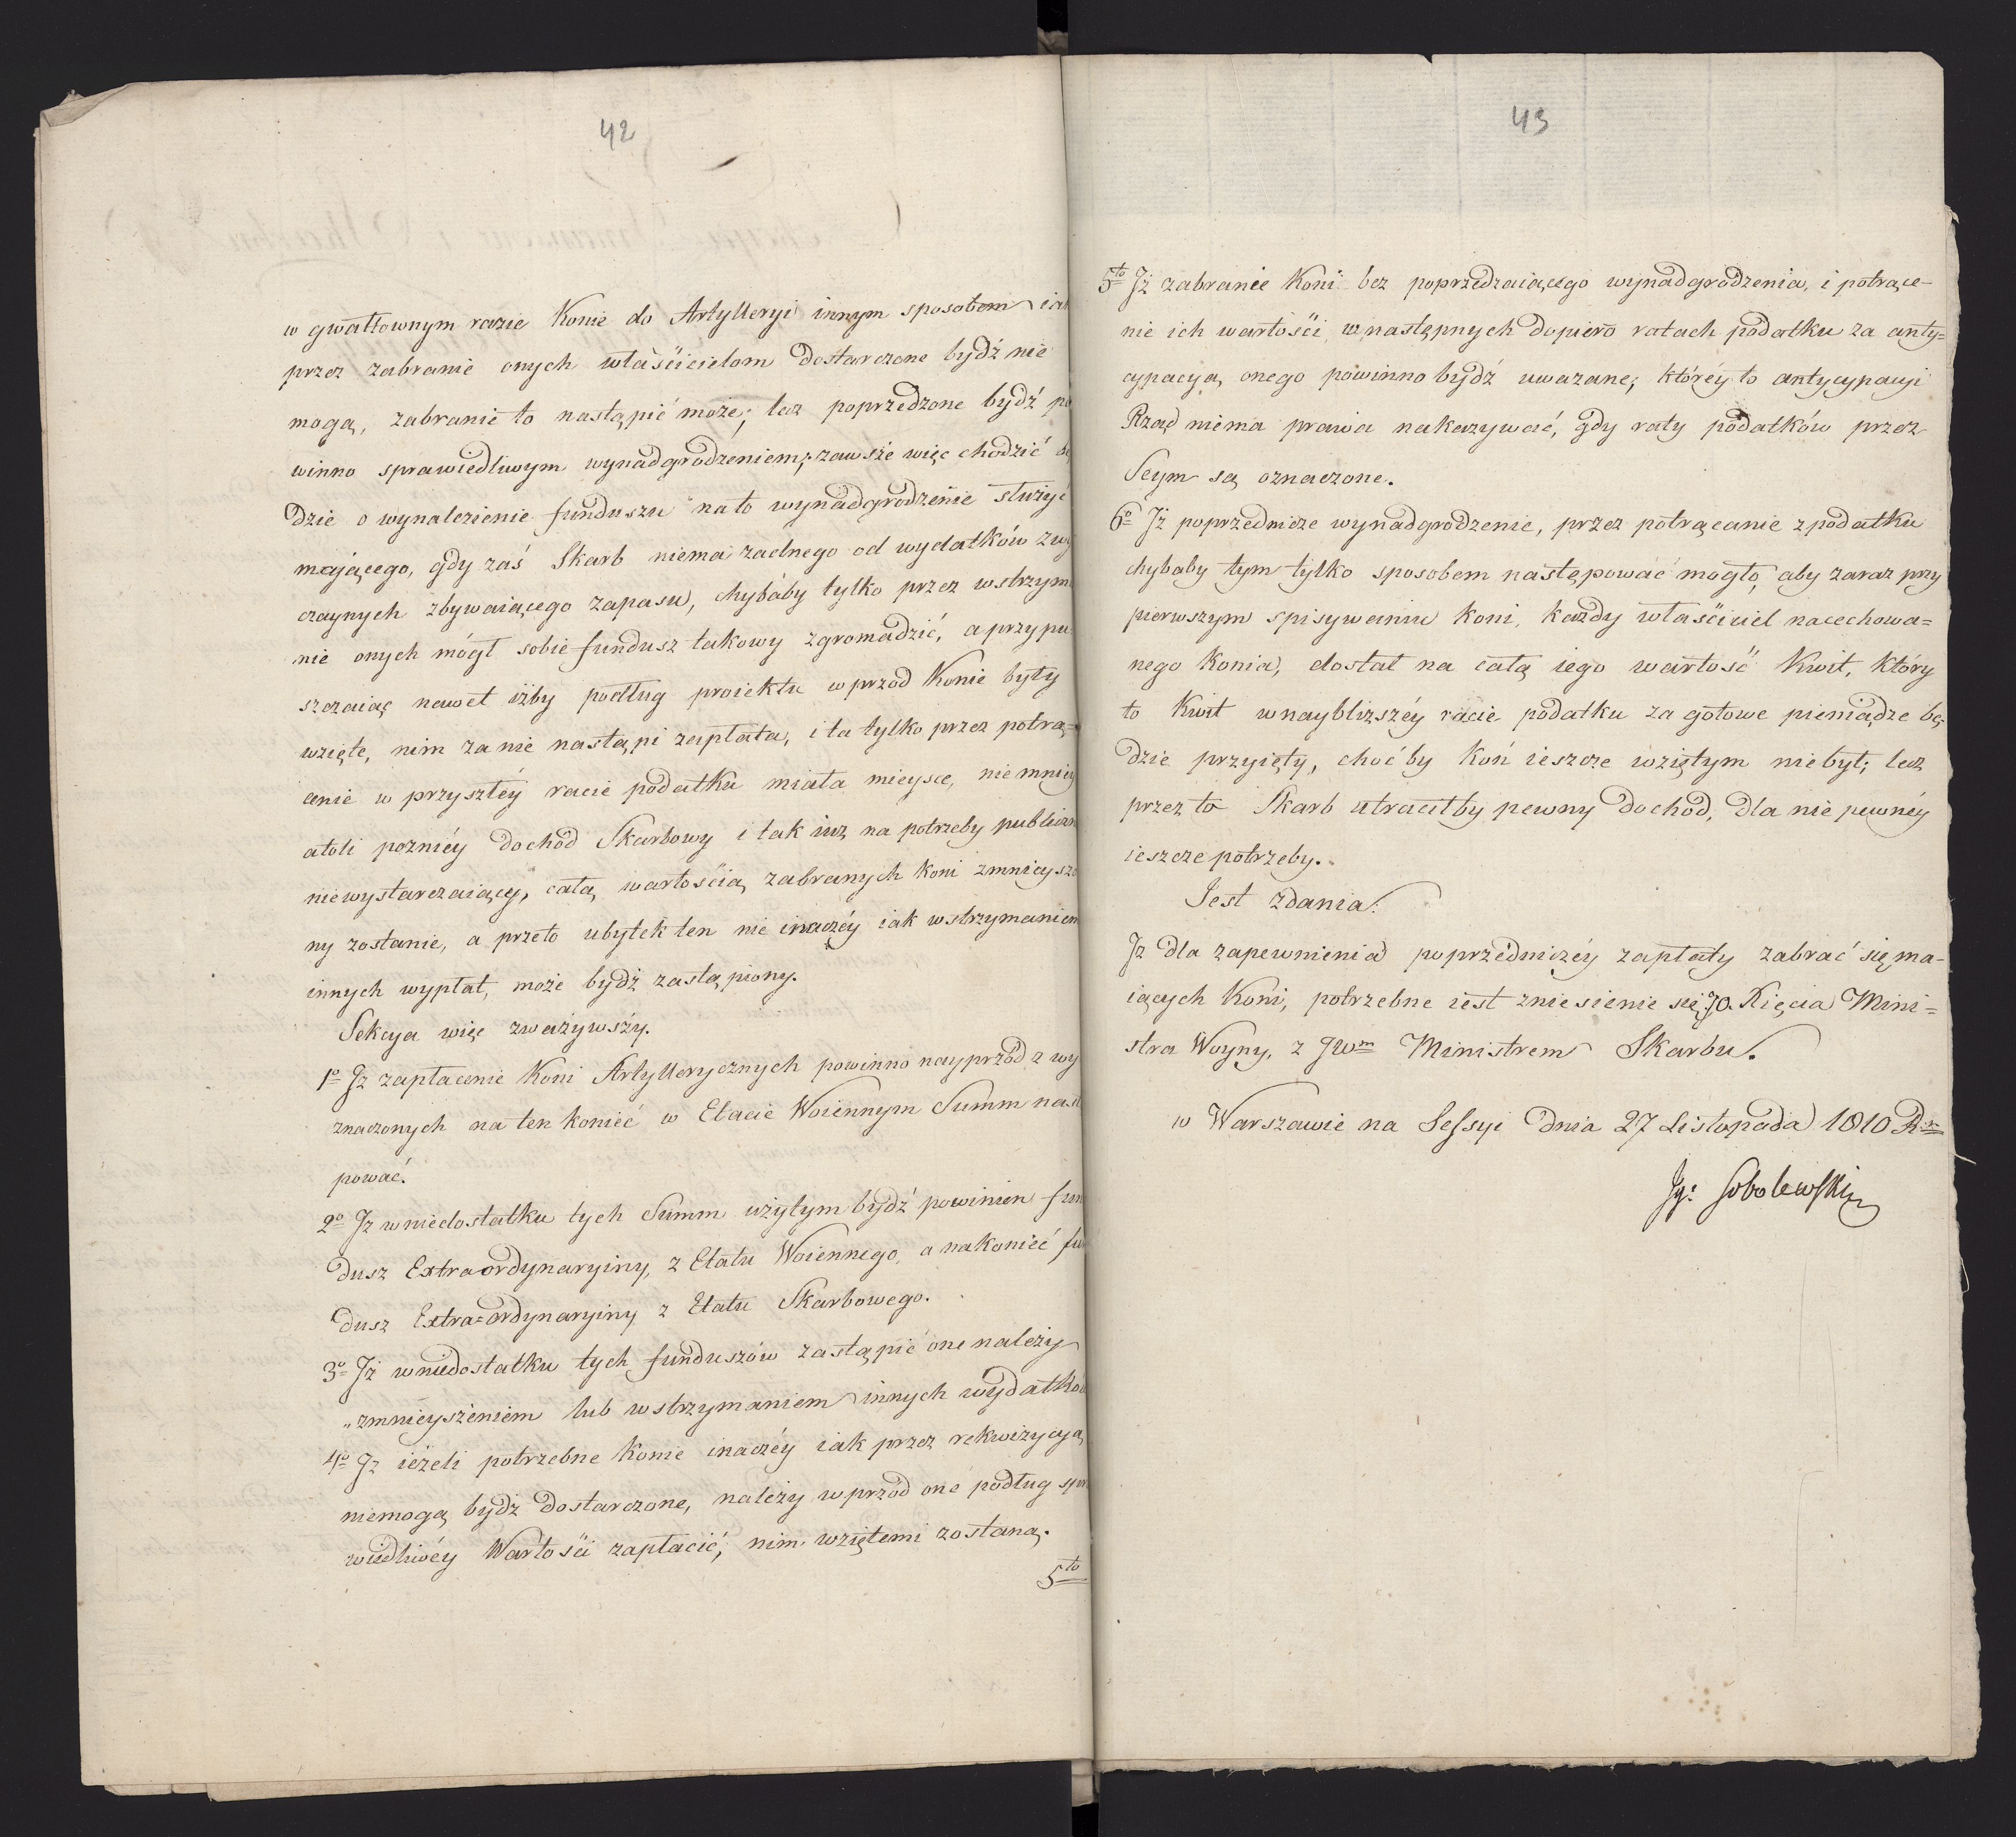 42
w gwałtownym razie Konie do Artylleryi innym sposobem iak
przez zabranie onych właścicielom dostarczone bydź nie
mogą, zabranie to nastąpić może; lecz poprzedzone bydź po
winno sprawiedliwym wynadgrodzeniem; zawsże więc chodzić bę
dzie o wynalezienie funduszu na to wynadgrodzenie służyć
mającego, gdy zaś Skarb niema żadnego od wydatków zwy
czaynych zbywaiącego zapasu, chybaby tylko przez wstrzyma
nie onych mógł sobie fundusz takowy zgromadzić, a przypu
szczaiąc nawet iżby podług proiektu w przód Konie były
wzięte, nim za nie nastąpi zapłata, i ta tylko przez potrą=
cenie w przyszłéy racie podatku miała mieysce, nie mniéy
atoli pozniéy dochód Skarbowy i tak iuż na potrzeby publiczn
niewystarczaiący, całą wartością zabranych Koni zmnieyszo
ny zostanie, a przeto ubytek ten nie inaczéy iak wstrzymaniem
innych wypłat, może bydź zastąpiony.
Sekcya więc zważywszy.
1o Jż zapłacenie Koni Artyllerycznych powinno nayprzód z wy
znaczonych na ten konieć w Etacie Woiennym Summ nastę
pować.
2o Jż w niedostatku tych Summ użytym bydź powinien fun
dusz Extraordynaryiny, z Etatu Woiennego, a nakonieć fun
dusz Extra=ordynaryiny z Etatu Skarbowego.
3o Jż w niedostatku tych funduszów zastąpić one należy
„zmnieyszeniem lub wstrzymaniem innych wydatków
4o Jż ieżeli potrzebne Konie inaczéy iak przez rekwizycyą
niemogą bydź dostarczone, należy w przód one podług spra
wiedliwéy Wartości zapłacić, nim wziętemi zostaną.
5to
43
5to Jż zabranie Koni bez poprzedzaiącego wynadgrodzenia, i potrące-
nie ich wartości, w następnych dopiero ratach podatku za anty=
cypacyą onego powinno bydź uwazane; któréy to antycypacyi
Rząd niema prawa nakazywać, gdy raty podatków przez
Seym są oznaczone.
6o Jż poprzednicze wynadgrodzenie, przez potrącanie z podatku
chybaby tym tylko sposobem następować mogło, aby zaraz przy
pierwszym spisywaniu Koni, każdy właściciel nacechowa=
nego Konia, dostał na całą iego wartość Kwit, który
to Kwit w naybliższéy racie podatku za gotowe pieniądze bę-
dzie przyięty, choćby koń ieszcze wziętym niebył; lecz
przez to Skarb utraciłby pewny dochód, dla nie pewnéy
ieszcze potrzeby.
Jest zdania:
Jż dla zapewnienia poprzedniczéy zapłaty zabrać się ma-
iących Koni, potrzebne iest zniesienie się JO. Xięcia Mini=
stra Woyny, z JWm Ministrem Skarbu.
w Warszawie na Sessyi dnia 27 Listopada 1810 R.
Jg: Sobolewski